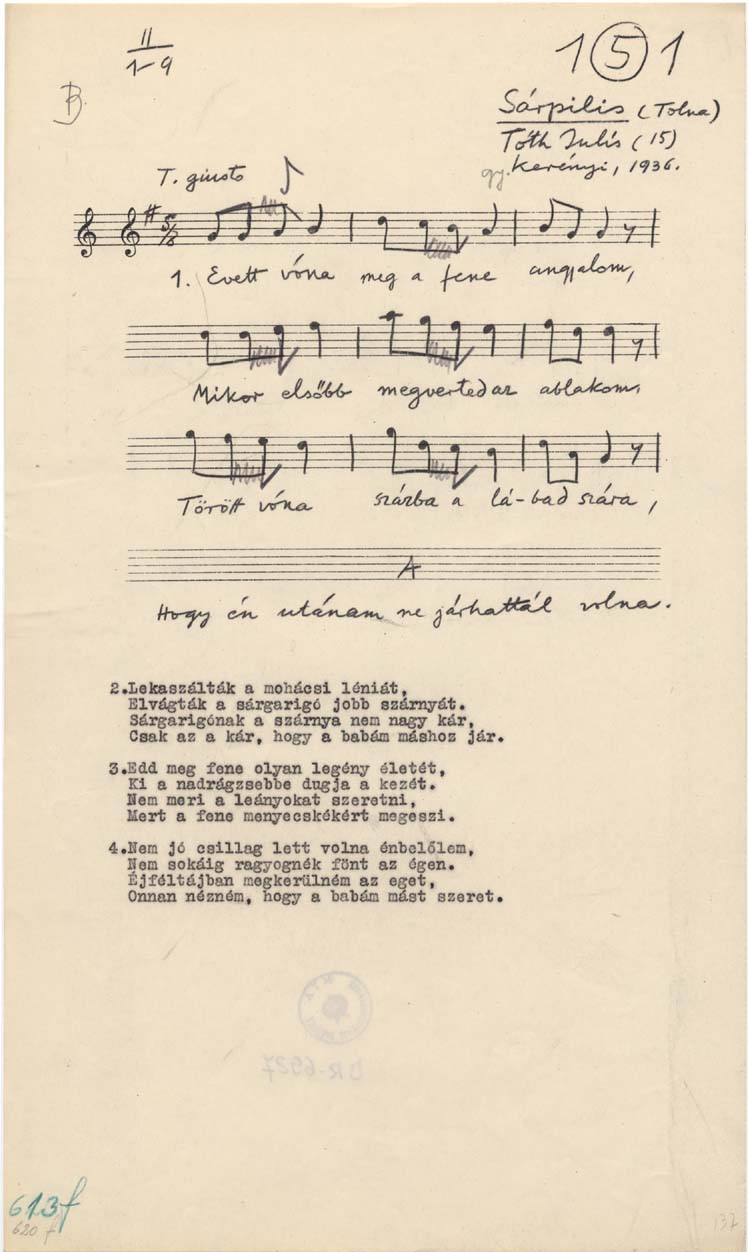 II
1-9
1 5 1
B.
Sárpilis (Tolna)
Tóth Julis (15)
gy. Kerényi, 1936.
T. giusto
5/8
1. Evett vóna meg a fene angyalom,
Mikor elsőbb megverted az ablakom,
Törött vóna szárba a lá-bad szára,
A
Hogy én utánam ne járhattál volna.
2.Lekaszálták a mohácsi léniát,
Elvágták a sárgarigó jobb szárnyát.
Sárgarigónak a szárnya nem nagy kár,
Csak az a kár, hogy a babám máshoz jár.
3.Edd meg fene olyan legény életét,
Ki a nadrágzsebbe dugja a kezét.
Nem meri a leányokat szeretni,
Mert a fene menyecskékért megeszi.
4.Nem jó csillag lett volna énbelőlem,
Nem sokáig ragyognék fönt az égen.
Éjféltájban megkerülném az eget,
Onnan nézném, hogy a babám mást szeret.
BR-6927
613f
620 f
132